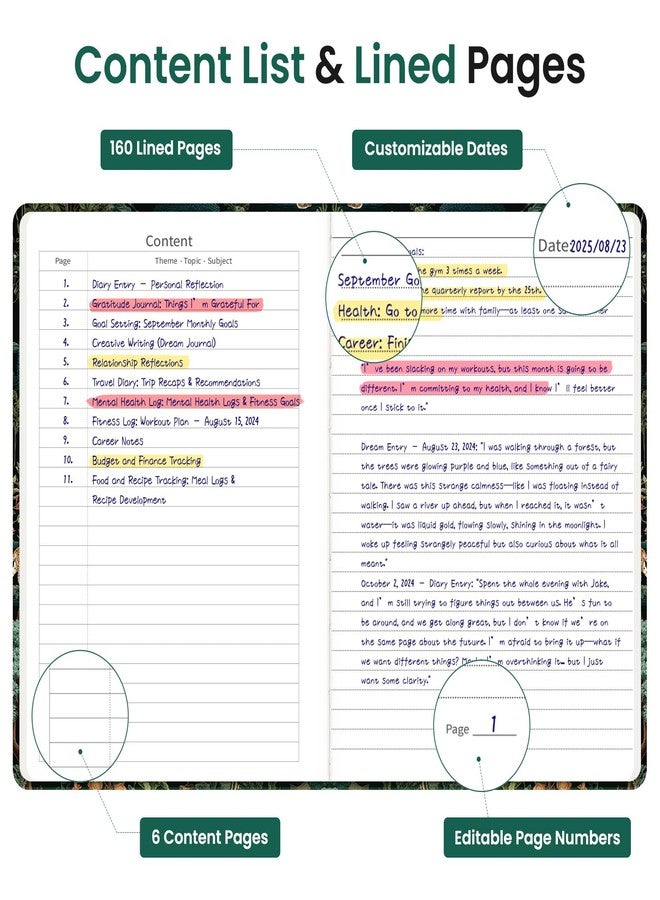 Content List & Lined Pages
160 Lined Pages
Customizable Dates
Content
Page Theme - Topic - Subject
1. Diary Entry – Personal Reflection
2. Gratitude Journal: Things I'm Grateful For
3. Goal Setting: September Monthly Goals
4. Creative Writing (Dream Journal)
5. Relationship Reflections
6. Travel Diary: Trip Recaps & Recommendations
7. Mental Health Log: Mental Health Logs & Fitness Goals
8. Fitness Log: Workout Plan – August 15, 2024
9. Career Notes
10. Budget and Finance Tracking
11. Food and Recipe Tracking: Meal Logs &
Recipe Development
6 Content Pages
Date 2025/08/23
als:
September Go
the gym 3 times a week.
he quarterly report by the 25th.
Health: Go to
more time with family—at least one
Career: Fini
"I've been slacking on my workouts, but this month is going to be
different. I'm committing to my health, and I know I'll feel better
once I stick to it."
Dream Entry – August 23, 2024: "I was walking through a forest, but
the trees were glowing purple and blue, like something out of a fairy
tale. There was this strange calmness—like I was floating instead of
walking. I saw a river up ahead, but when I reached it, it wasn't
water—it was liquid gold, flowing slowly, shining in the moonlight. I
woke up feeling strangely peaceful but also curious about what it all
meant."
October 2, 2024 – Diary Entry: "Spent the whole evening with Jake,
and I'm still trying to figure things out between us. He's fun to
be around, and we get along great, but I don't know if we're on
the same page about the future. I'm afraid to bring it up—what if
we want different things? I'm overthinking it... but I just
want some clarity."
Page 1
Editable Page Numbers